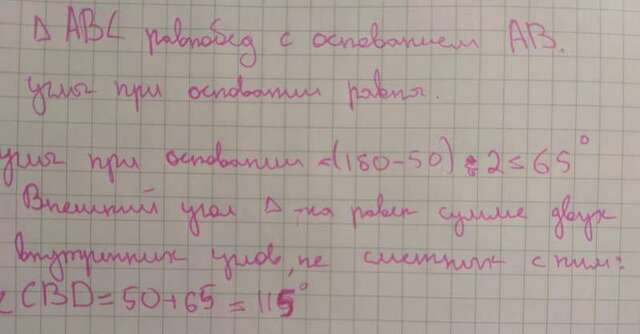 Δ ABC равнобед с основанием AB.
углы при основании равны.
углы при основании =(180-50):2=65°
Внешний угол Δ-ка равен сумме двух
внутренних углов, не смежных с ним:
∠CBD=50+65=115°